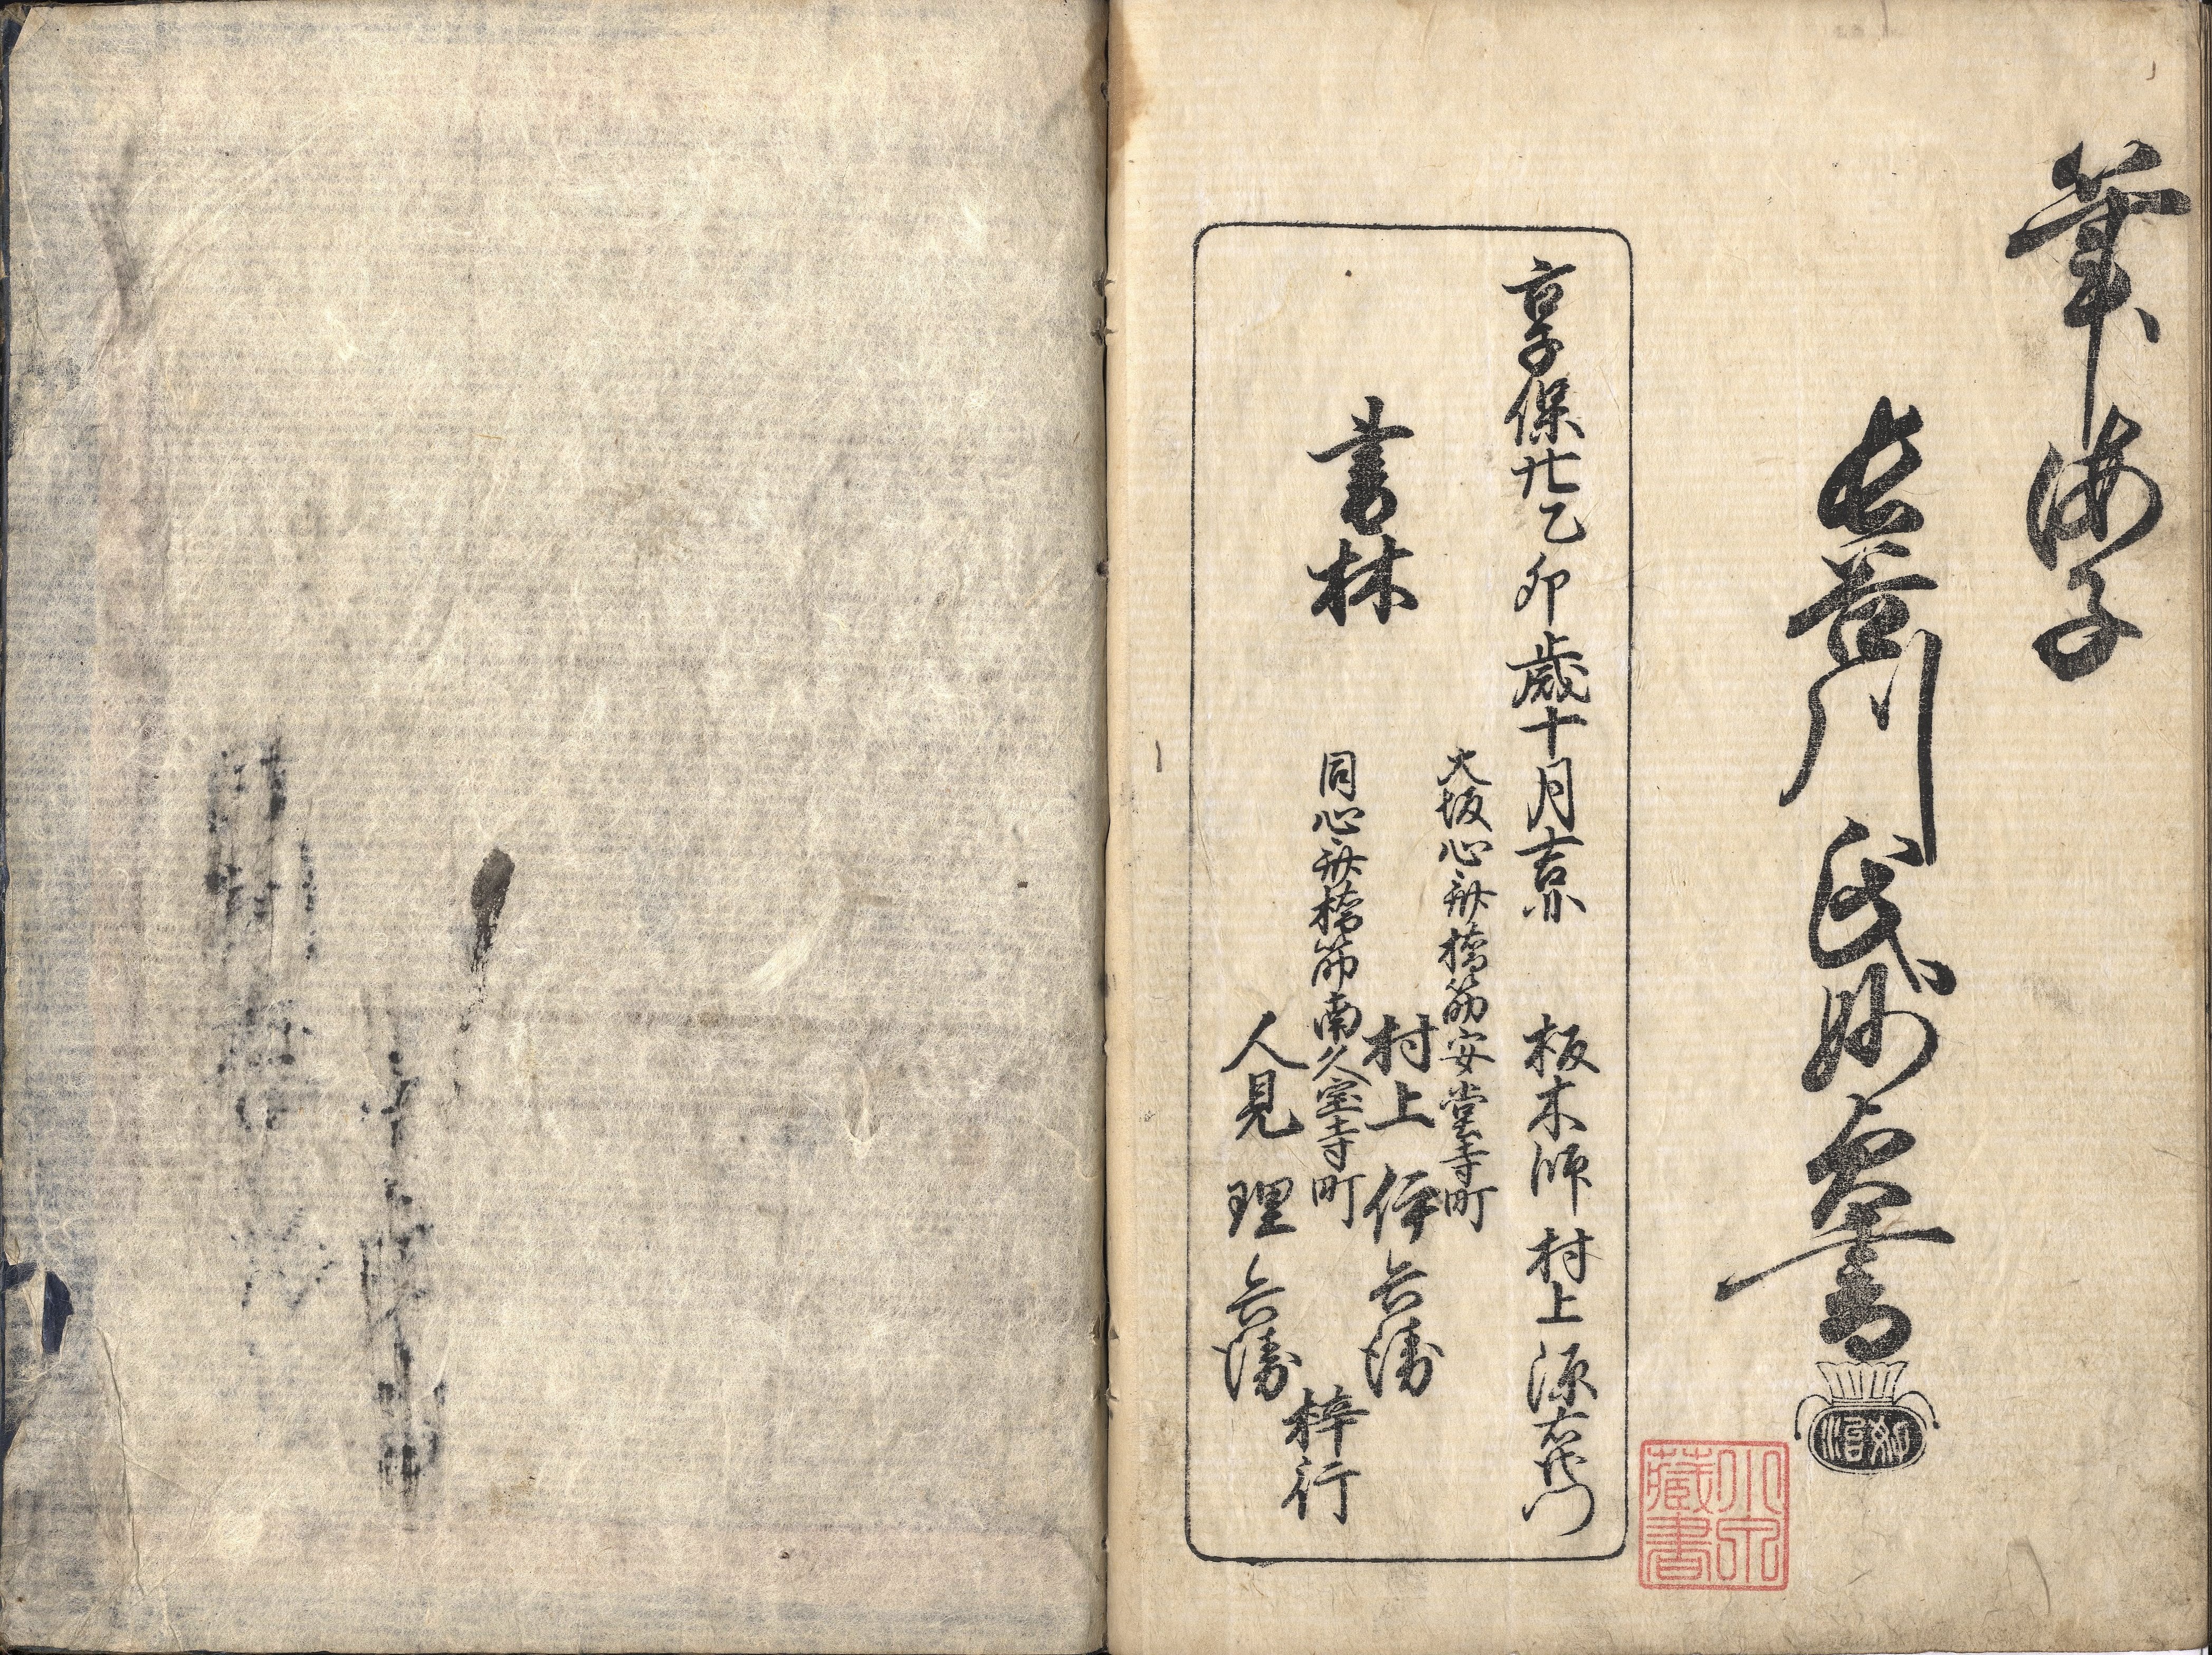 筆海子
長谷川氏妙貞書
享保廿乙卯歳十月吉旦
板木師 村上源右衛門
書林
大坂心斎橋筋安堂寺町
村上伊兵衛
同心斎橋筋南久宝寺町
人見理兵衛
梓行
小泉蔵書